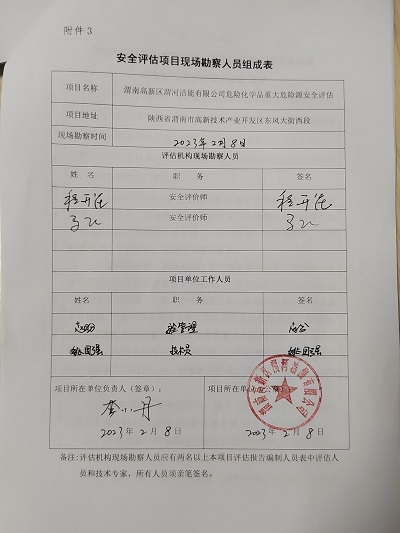 附件 3
安全评估项目现场勘察人员组成表
项目名称 渭南高新区渭河洁能有限公司危险化学品重大危险源安全评估
项目地址 陕西省渭南市高新技术产业开发区东风大街西段
现场勘察时间 2023年2月8日
评估机构现场勘察人员
姓 名 职 务 签名
安全评价师
安全评价师
项目单位工作人员
姓名 职 务 签名
姚国强 技术员 姚国强
项目所在单位负责人（签章）： 项目所在单位公章
李小丹
2023年2月8日 2023年2月8
备注:评估机构现场勘察人员应有两名以上本项目评估报告编制人员表中评估人
员和技术专家，所有人员须亲笔签名。